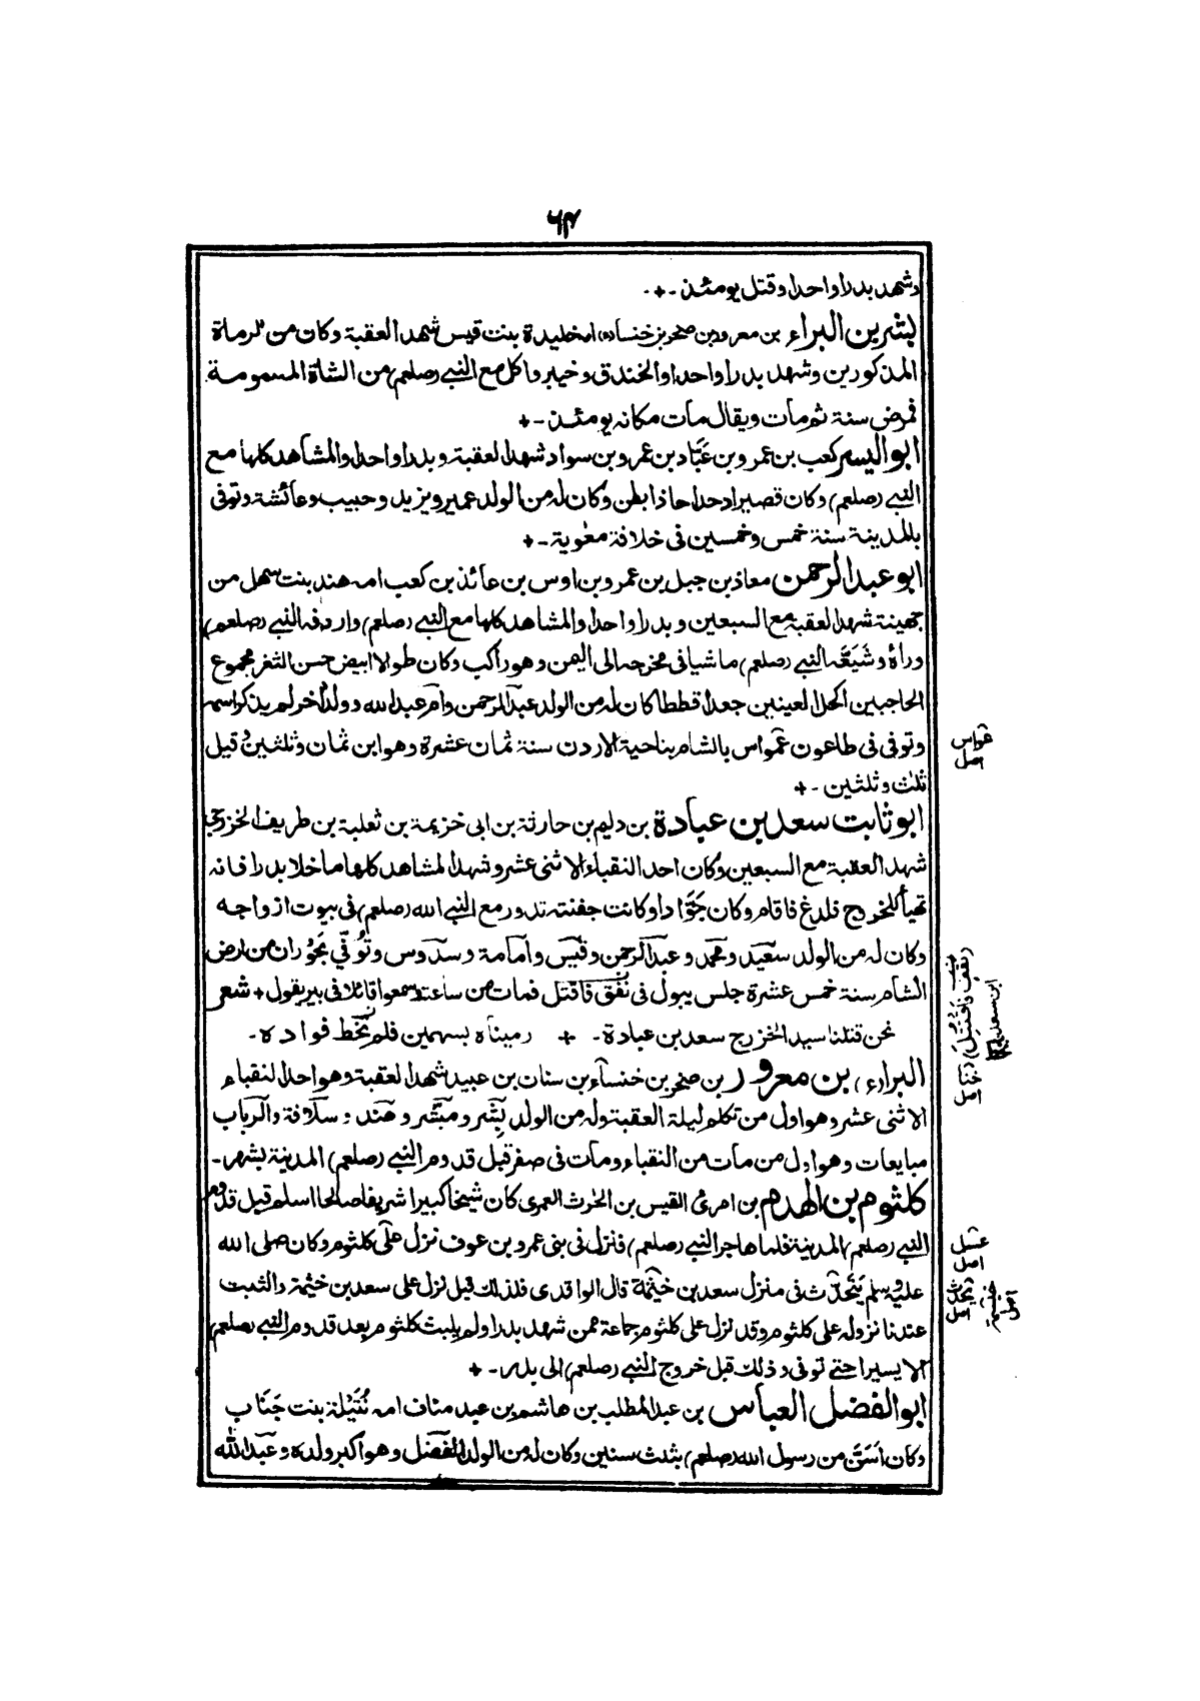 ٦٣
وشهد بدرا واحدا وقتل يومئذ -+-
بشر بن البراء بن معرور بن صخر بن خنساء امه خليدة بنت قيس شهد العقبة وكان من الرماة
المذكورين وشهد بدرا واحدا والخندق وخيبر واكل مع النبي (صلعم) من الشاة المسمومة
فمرض سنة ثم مات ويقال مات مكانه يومئذ -+
ابو اليسر كعب بن عمرو بن عَبَّاد بن عمرو بن سواد شهد العقبة وبدرا واحدا والمشاهد كلها مع
النبي (صلعم) وكان قصيرا دحداحا ذا بطن وكان له من الولد عمير ويزيد وحبيب وعائشة وتوفى
بالمدينة سنة خمس وخمسين فى خلافة معٰوية -+
ابو عبد الرحمن معاذ بن جبل بن عمرو بن اوس بن عائذ بن كعب امه هند بنت سهل من
جهينة شهد العقبة مع السبعين وبدرا واحدا والمشاهد كلها مع النبي (صلعم) واردفه النبي (صلعم)
وراءه وشَيَّعَه النبي (صلعم) ماشيا فى مخرجه الى اليمن وهو راكب وكان طوالا ابيض حسن الثغر مجموع
الحاجبين اكحل العينين جعدا قططا كان له من الولد عبد الرحمن وام عبد الله وولد اخر لم يذكر اسمه
وتوفى فى طاعون عمواس بالشام بناحية الاردن سنة ثمان عشرة وهو ابن ثمان وثلثين وقيل
ثلث وثلثين -+
ابو ثابت سعد بن عبادة بن دليم بن حارثة بن ابى خزيمة بن ثعلبة بن طريف الخزرجى
شهد العقبة مع السبعين وكان احد النقباء الاثنى عشر وشهد المشاهد كلها ما خلا بدرا فانه
تهيأ للخروج فلدغ فاقام وكان جَوَّادا وكانت جفنته تدور مع النبي الله (صلعم) فى بيوت ازواجه
وكان له من الولد سعيد ومحمد وعبد الرحمن وقيس وامامة وسدوس وتُوفّي بحَوْران من ارض
الشام سنة خمس عشرة جلس يبول فى نفق فاقتل فمات من ساعته وسمعوا قائلا فى بير يقول + شعر
نحن قتلنا سيد الخزرج سعد بن عبادة - + رميناه بسهمين فلم نخط فواده -
البراء بن معرور بن صخر بن خنساء بن سنان بن عبيد شهد العقبة وهو احد النقباء
الاثنى عشر وهو اول من تكلم ليلة العقبة وله من الولد بِشر ومبشر وهند وسلافة والرباب
مبايعات وهو اول من مات من النقباء ومات فى صفر قبل قدوم النبي (صلعم) المدينة بشهر -
كلثوم بن الهدم بن امرئ القيس بن الحٰرث العمرى كان شيخا كبيرا شريفا صالحا اسلم قبل قدوم
النبي (صلعم) المدينة فلما هاجر النبي (صلعم) فنزل فى بنى عمرو بن عوف نزل على كلثوم وكان صلى الله
عليه وسلم يتحدّث فى منزل سعد بن خيثمة قال الواقدى فلذلك قيل نزل على سعد بن خيثمة والثبت
عندنا نزوله على كلثوم وقد نزل على كلثوم جماعة ممن شهد بدرا ولم يلبث كلثوم بعد قدوم النبي (صلعم)
الا يسيرا حتى توفى وذلك قبل خروج النبي (صلعم) الى بدر -+
ابو الفضل العباس بن عبد المطلب بن هاشم بن عبد مناف امه نُتَيْلة بنت جَنَاب
وكان اَسَنَّ من رسول الله (صلعم) بثلث سنين وكان له من الولد الفضل وهو اكبر ولده وعبد الله
عمواس
اصل
ابن سعد
اصل
اصل
تحدث
اصل
اصل